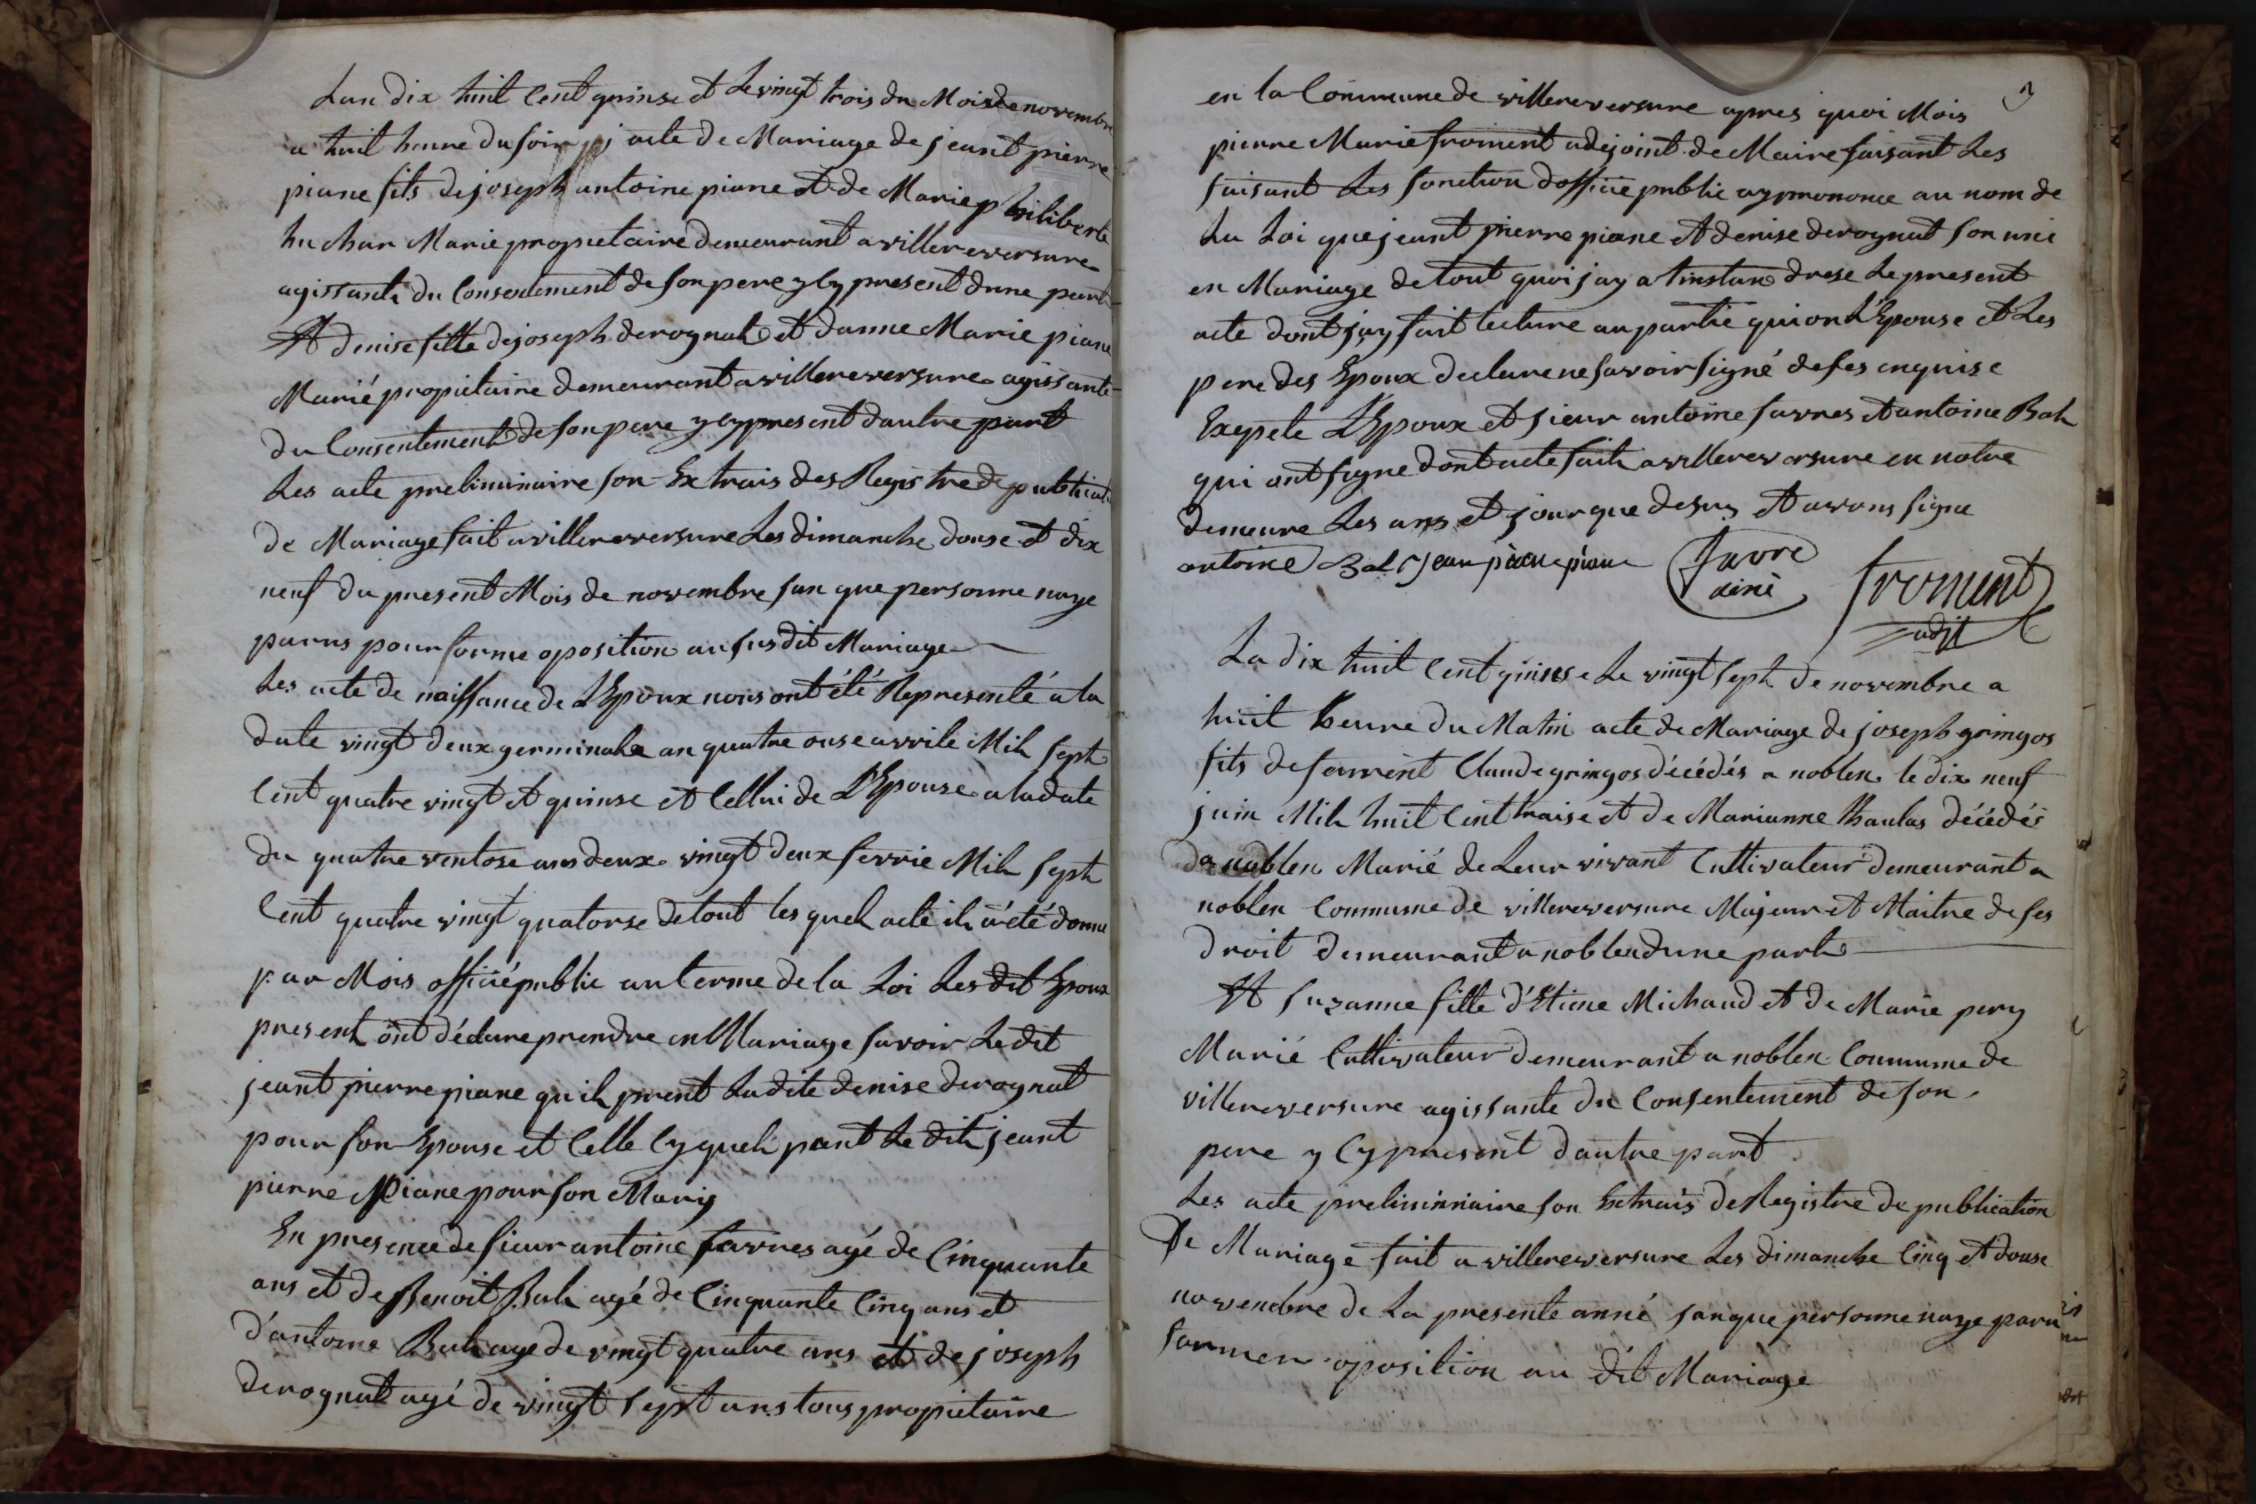 Lan dix huit Cent quinse et Le vingt trois du Mois de novembre
a huit heure du soir acte de Mariage de jeant pierre
piane fils de joseph antoine piane et de Marie philiberte
huchar Marie propietaire demeurant a villereversure
agissante du Consentement de son pere y Cy present dune part
Et denise fille de joseph derognat et danne Marie piane
Marié propietaire demeurant a villereversure agissante
du Consentement de son pere y cy present dautre part
Les acte preliminaire son Extrais des Registre de publicati
de Mariage fait a villereversure Les dimanche douse et dix
neuf du present Mois de novembre san que personne naye
parus pour forme oposition au susdit Mariage
Les acte de naissance de L'Epoux nous ont été Representé a la
date vingt deux germinale an quatre onse avrile Mil sept
Cent quatre vingt et quinse et Cellui de L'Epouse a la date
du quatre ventose ans deux vingt deux fevrie Mil sept
Cent quatre vingt quatorse de tout les quel acte il a été donne
par Mois officié public au terme de la Loi Les dit Epoux
present ont déclare prendre en Mariage savoir Ledit
jeant pierre piane quil prent Ladite denise derognat
pour son Epouse et Celle Cy quel prant Le dit jeant
pierre Piane pour son Marig
En presence de sieur antoine favres agé de Cinquante
ans et de Benoit Bal agé de Cinquante Cinq ans et
d'antoine Bal age de vingt quatre ans et de joseph
derognat agé de vingt sept ans tous propietaire
3
en la Commune de villereversure apres quoi Mois
pierre Marie froment adejoint de Maire faisant Les
faisant Les fonction dofficie public ay prononce au nom de
La Loi que jeant pierre piane et denise derognat son uni
en Mariage de tout quoi jay a linstan drese Le present
acte dont jay fait lecture au partie qui on L'Epouse et Les
pere des Epoux declare ne savoir signé de ses enquise
Exepete L'Epoux et sieur antoine favres et antoine Bal
qui ont signe dont acte fait a villereversure en notre
demeure Les ans et jour que desus et avons signe
antoine Bal jean piere piane Favre
ainé froment
adjt
La dix huit Cent quinse Le vingt sept de novembre a
huit heure du Matin acte de Mariage de joseph gringos
fils de feurent Claude gringos décédés a noblen le dix neuf
juin Mil huit Cent traise et de Marianne Chaulas décédés
a noblen Marié de Leur vivant Cultivateur demeurant a
noblen Commune de villereversure Majeur et Maitre de ses
droit demeurant a noblen dune part
Et suzanne fille d'Etiene Michaud et de Marie pery
Marié Cultivateur demeurant a noblen Commune de
villereversure agissante du Consentement de son
pere y Cy present dautre part
Les acte preliminniaire son Extrais de Registre de publication
De Mariage fait a villereversure Les dimanche Cinq et douse
novenbre de La presente anné sanque personne naye parus
former oposition au dit Mariage